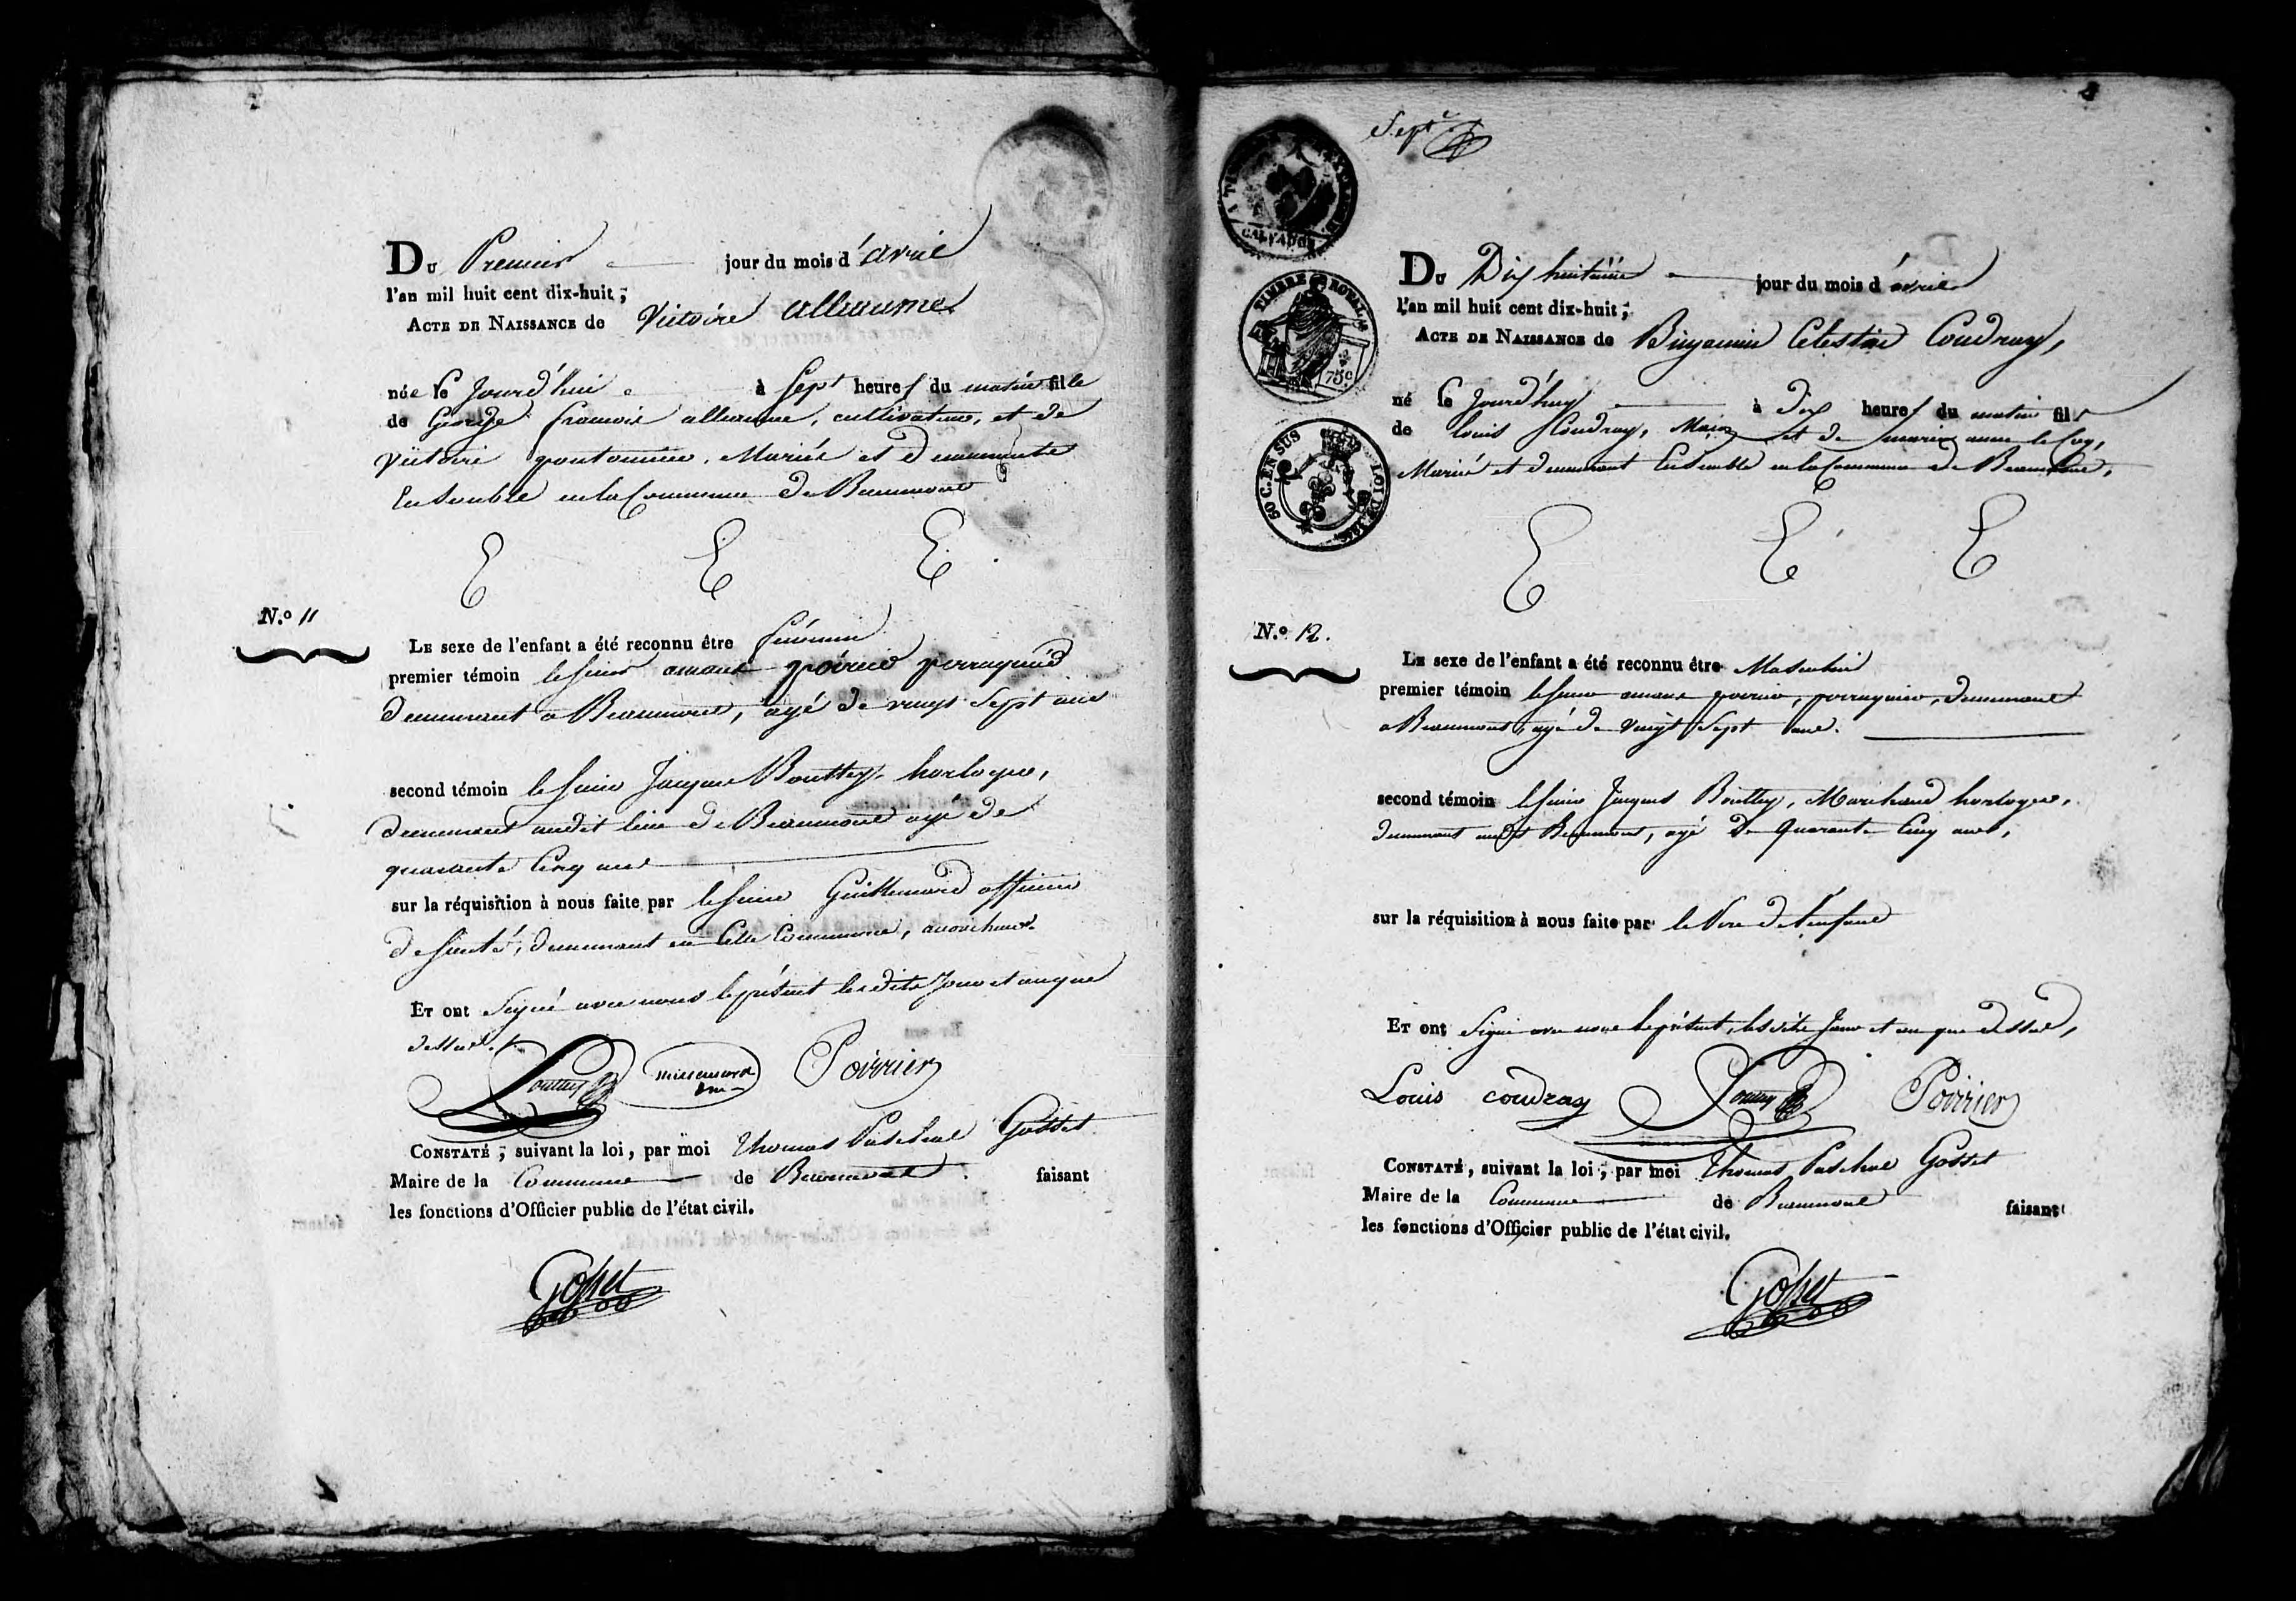 Du Premier jour du mois d'avril
l'an mil huit cent dix-huit;
Acte de Naissance de Victoire alleaume
née le Jourd'hui à Sept heures du matin fille
de George francois alleaume, cultivateur, et de
Victoire Mariés et demeurants
Ensemble en la Commune de Beaumont
N.º 11
Le sexe de l'enfant a été reconnu être féminin
premier témoin le sieur amant poirier perruquier
demeurant a Beaumont, agé de vingt Sept ans
second témoin le sieur Jacques Bouttey horloger,
demeurant audit lieu de Beaumont agé de
quarante Cinq ans
sur la réquisition à nous faite par le sieur Guillemard officier
de Santé, demeurant en Cette Commune, accoucheur
Et ont Signé avec nous le présent lesdits Jour et an que
dessus.
Bouttey Poirrier
Constaté, suivant la loi, par moi Thomas Paschal Gosset
Maire de la Commune de Beaumont faisant
les fonctions d'Officier public de l'état civil.
Gosset
Sept.e
CALVADOS
TIMBRE ROYAL
75c
50 C. EN SUS LOI DE 1816
Du Dix huitième jour du mois d'avril
l'an mil huit cent dix-huit;
Acte de Naissance de Binjamin Celestin Coudray,
né le Jourd'huy à Dix heures du matin fils
de louis Coudray, et de marie anne le
Mariés et demeurant Ensemble en la Commune de Beaumont,
N.º 12.
Le sexe de l'enfant a été reconnu être Masculin
premier témoin le sieur amant poirier, perruquier, demeurant
a Beaumont, agé de vingt Sept ans.
second témoin le sieur Jacques Bouttey, Marchand horloger,
demeurant audit Beaumont, agé De Quarante Cinq ans,
sur la réquisition à nous faite par le Père de l'enfant
Et ont Signé avec nous le présent, lesdits Jour et an que dessus,
Louis coudray Bouttey Poirrier
Constaté, suivant la loi, par moi Thomas Paschal Gosset
Maire de la Commune de Beaumont faisant
les fonctions d'Officier public de l'état civil.
Gosset